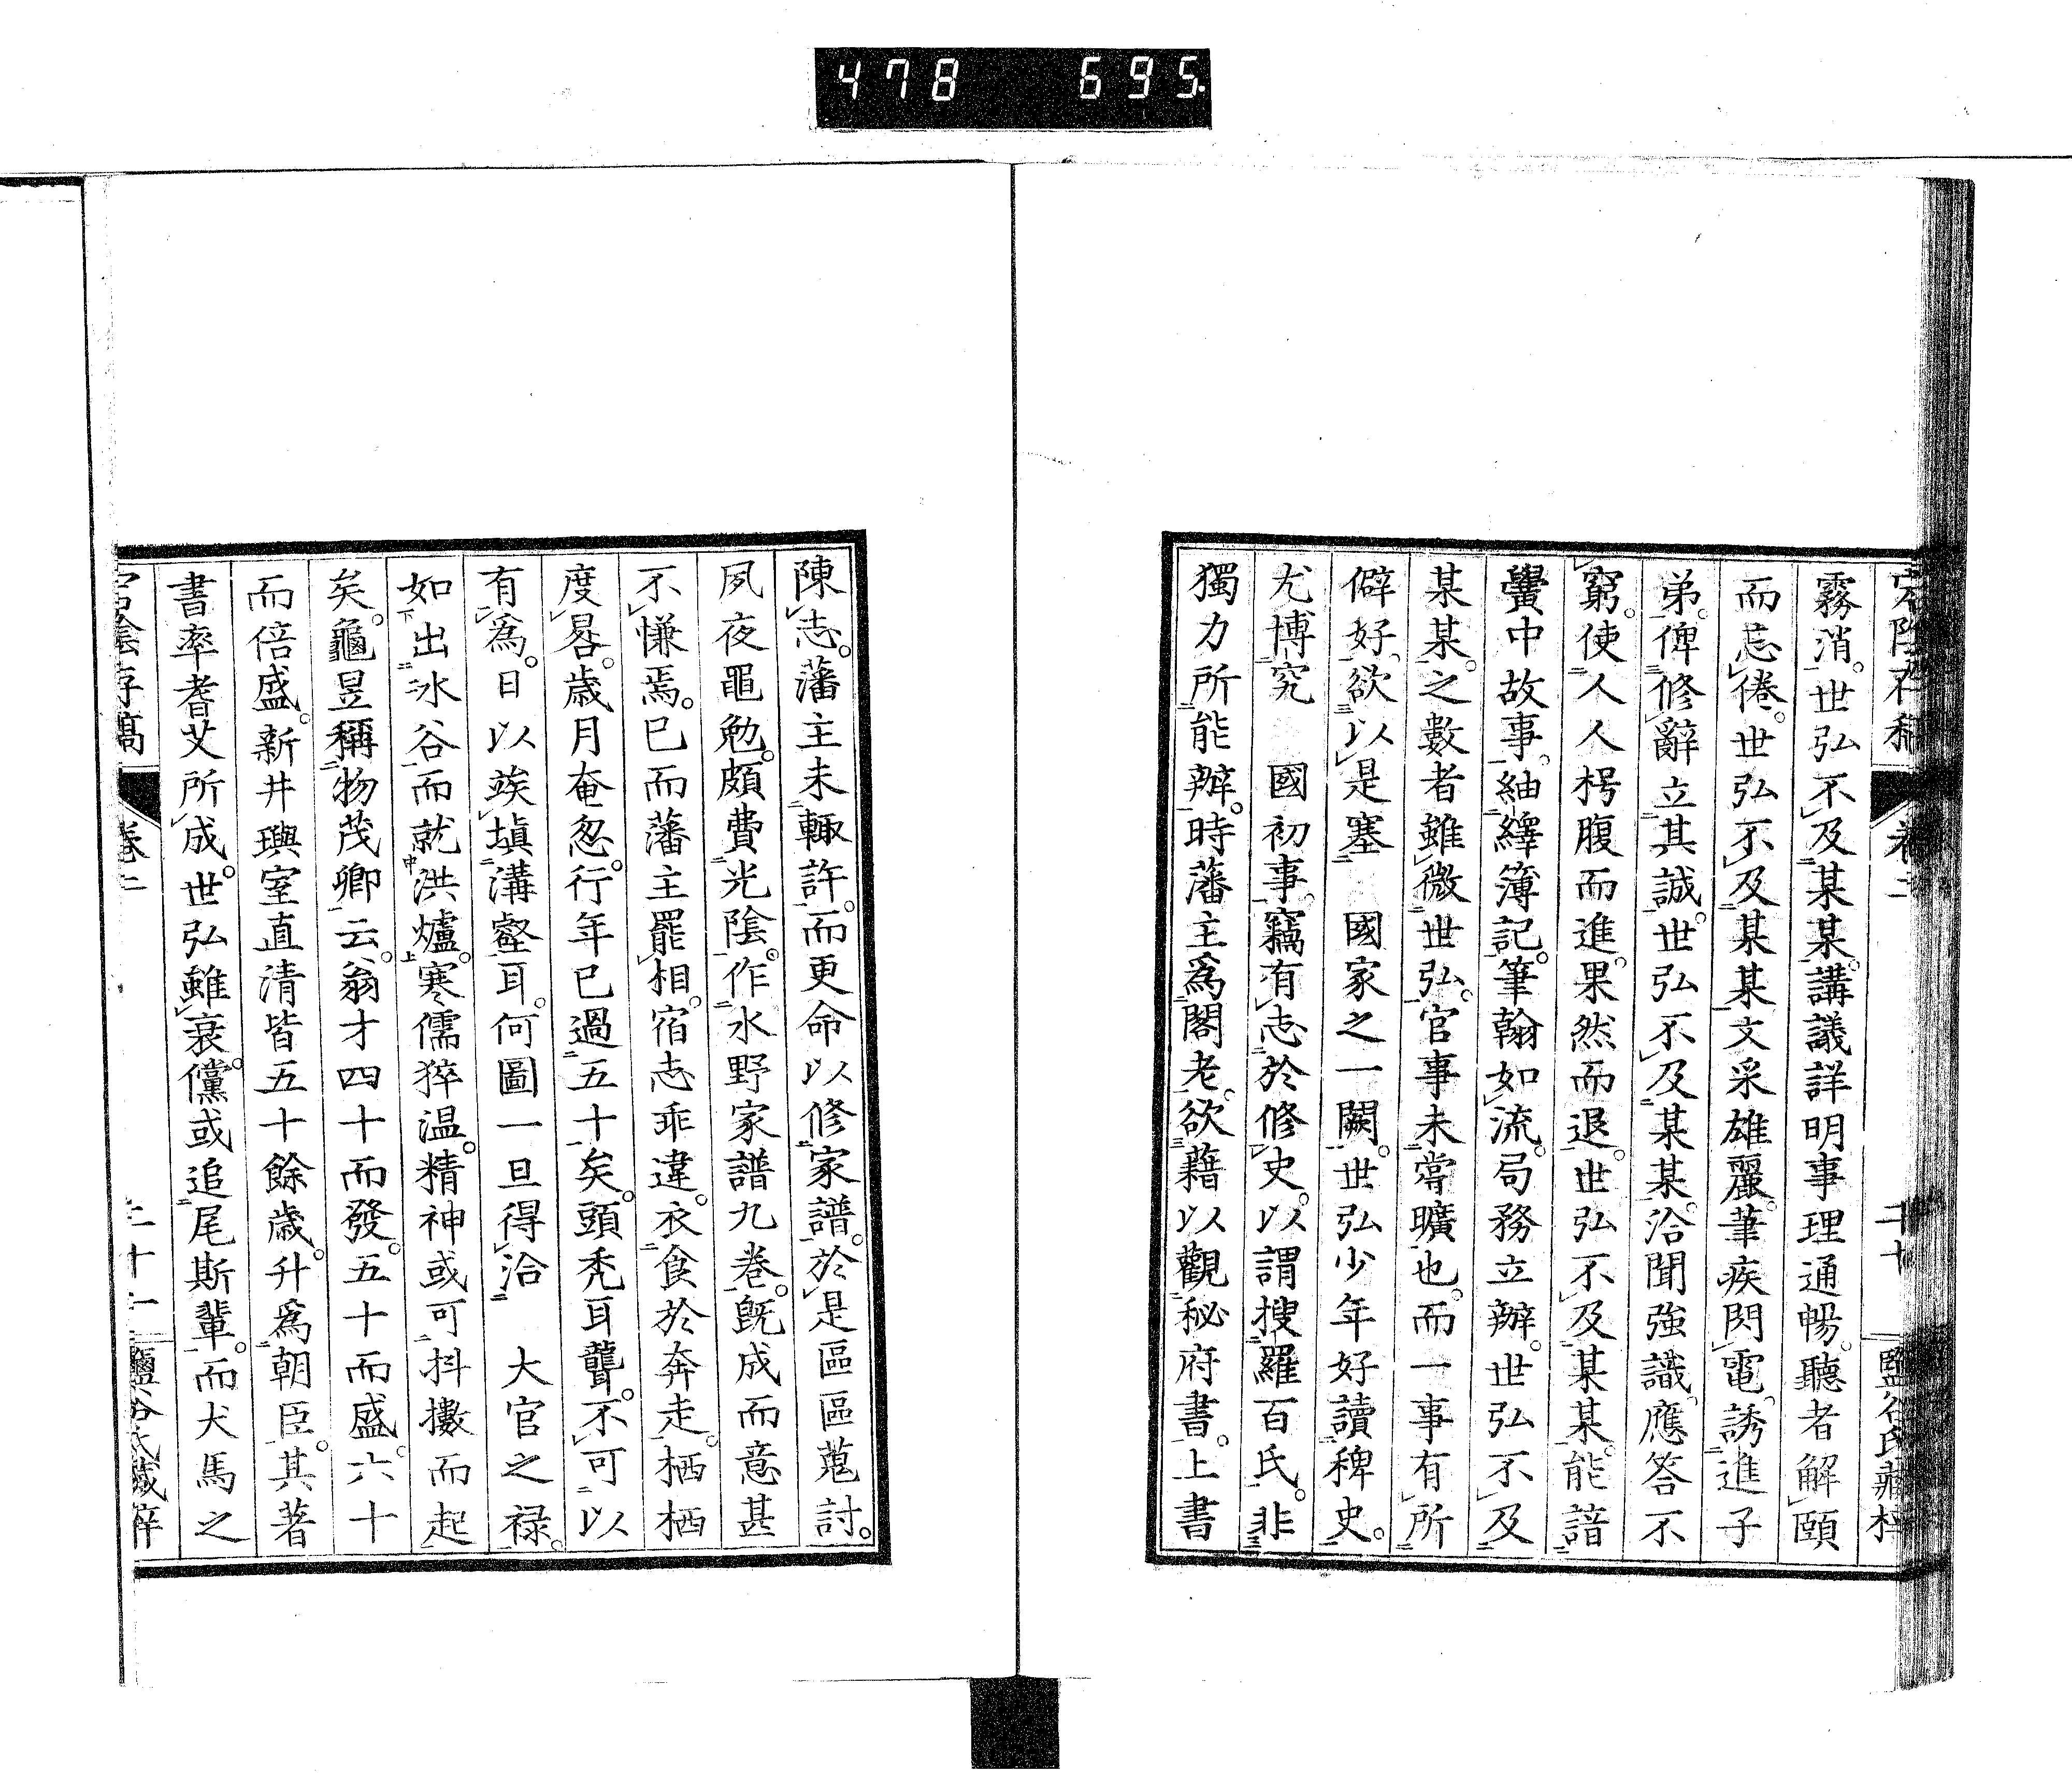 478 695.
霧消。世弘不及某某。講議詳明事理通暢。聽者解頤
而忘倦。世弘不及某某文采雄麗。筆疾閃電。誘進子
弟。俾修辭立其誠。世弘不及某某。洽聞強識。應答不
窮。使人人枵腹而進。果然而退。世弘不及某某。能諳
黌中故事。紬繹簿記。筆翰如流。局務立辦。世弘不及
某某。之數者雖微世弘。官事未嘗曠也。而一事有所
僻好。欲以是塞 國家之一闕。世弘少年好讀稗史。
尤博究 國初事。竊有志於修史。以謂搜羅百氏。非
獨力所能辨。時藩主為閣老。欲藉以觀秘府書。上書
陳志。藩主未輙許。而更命以修家譜。於是區區蒐討。
夙夜黽勉。頗費光陰。作水野家譜九巻。既成而意甚
不慊焉。已而藩主罷相。宿志乖違。衣食於奔走。栖栖
度晷。歳月奄忽。行年已過五十矣。頭禿耳聾。不可以
有為。日以竢塡溝壑耳。何圖一旦得洽 大官之禄。
如出冰谷而就洪爐。寒儒猝温。精神或可抖擻而起
矣。龜昱稱物茂卿云。翁才四十而發。五十而盛。六十
而倍盛。新井璵室直清皆五十餘歳。升為朝臣。其著
書率耆艾所成。世弘雖衰。儻或追尾斯輩。而犬馬之
宕陰存稾 巻二 二十一 鹽谷氏藏梓